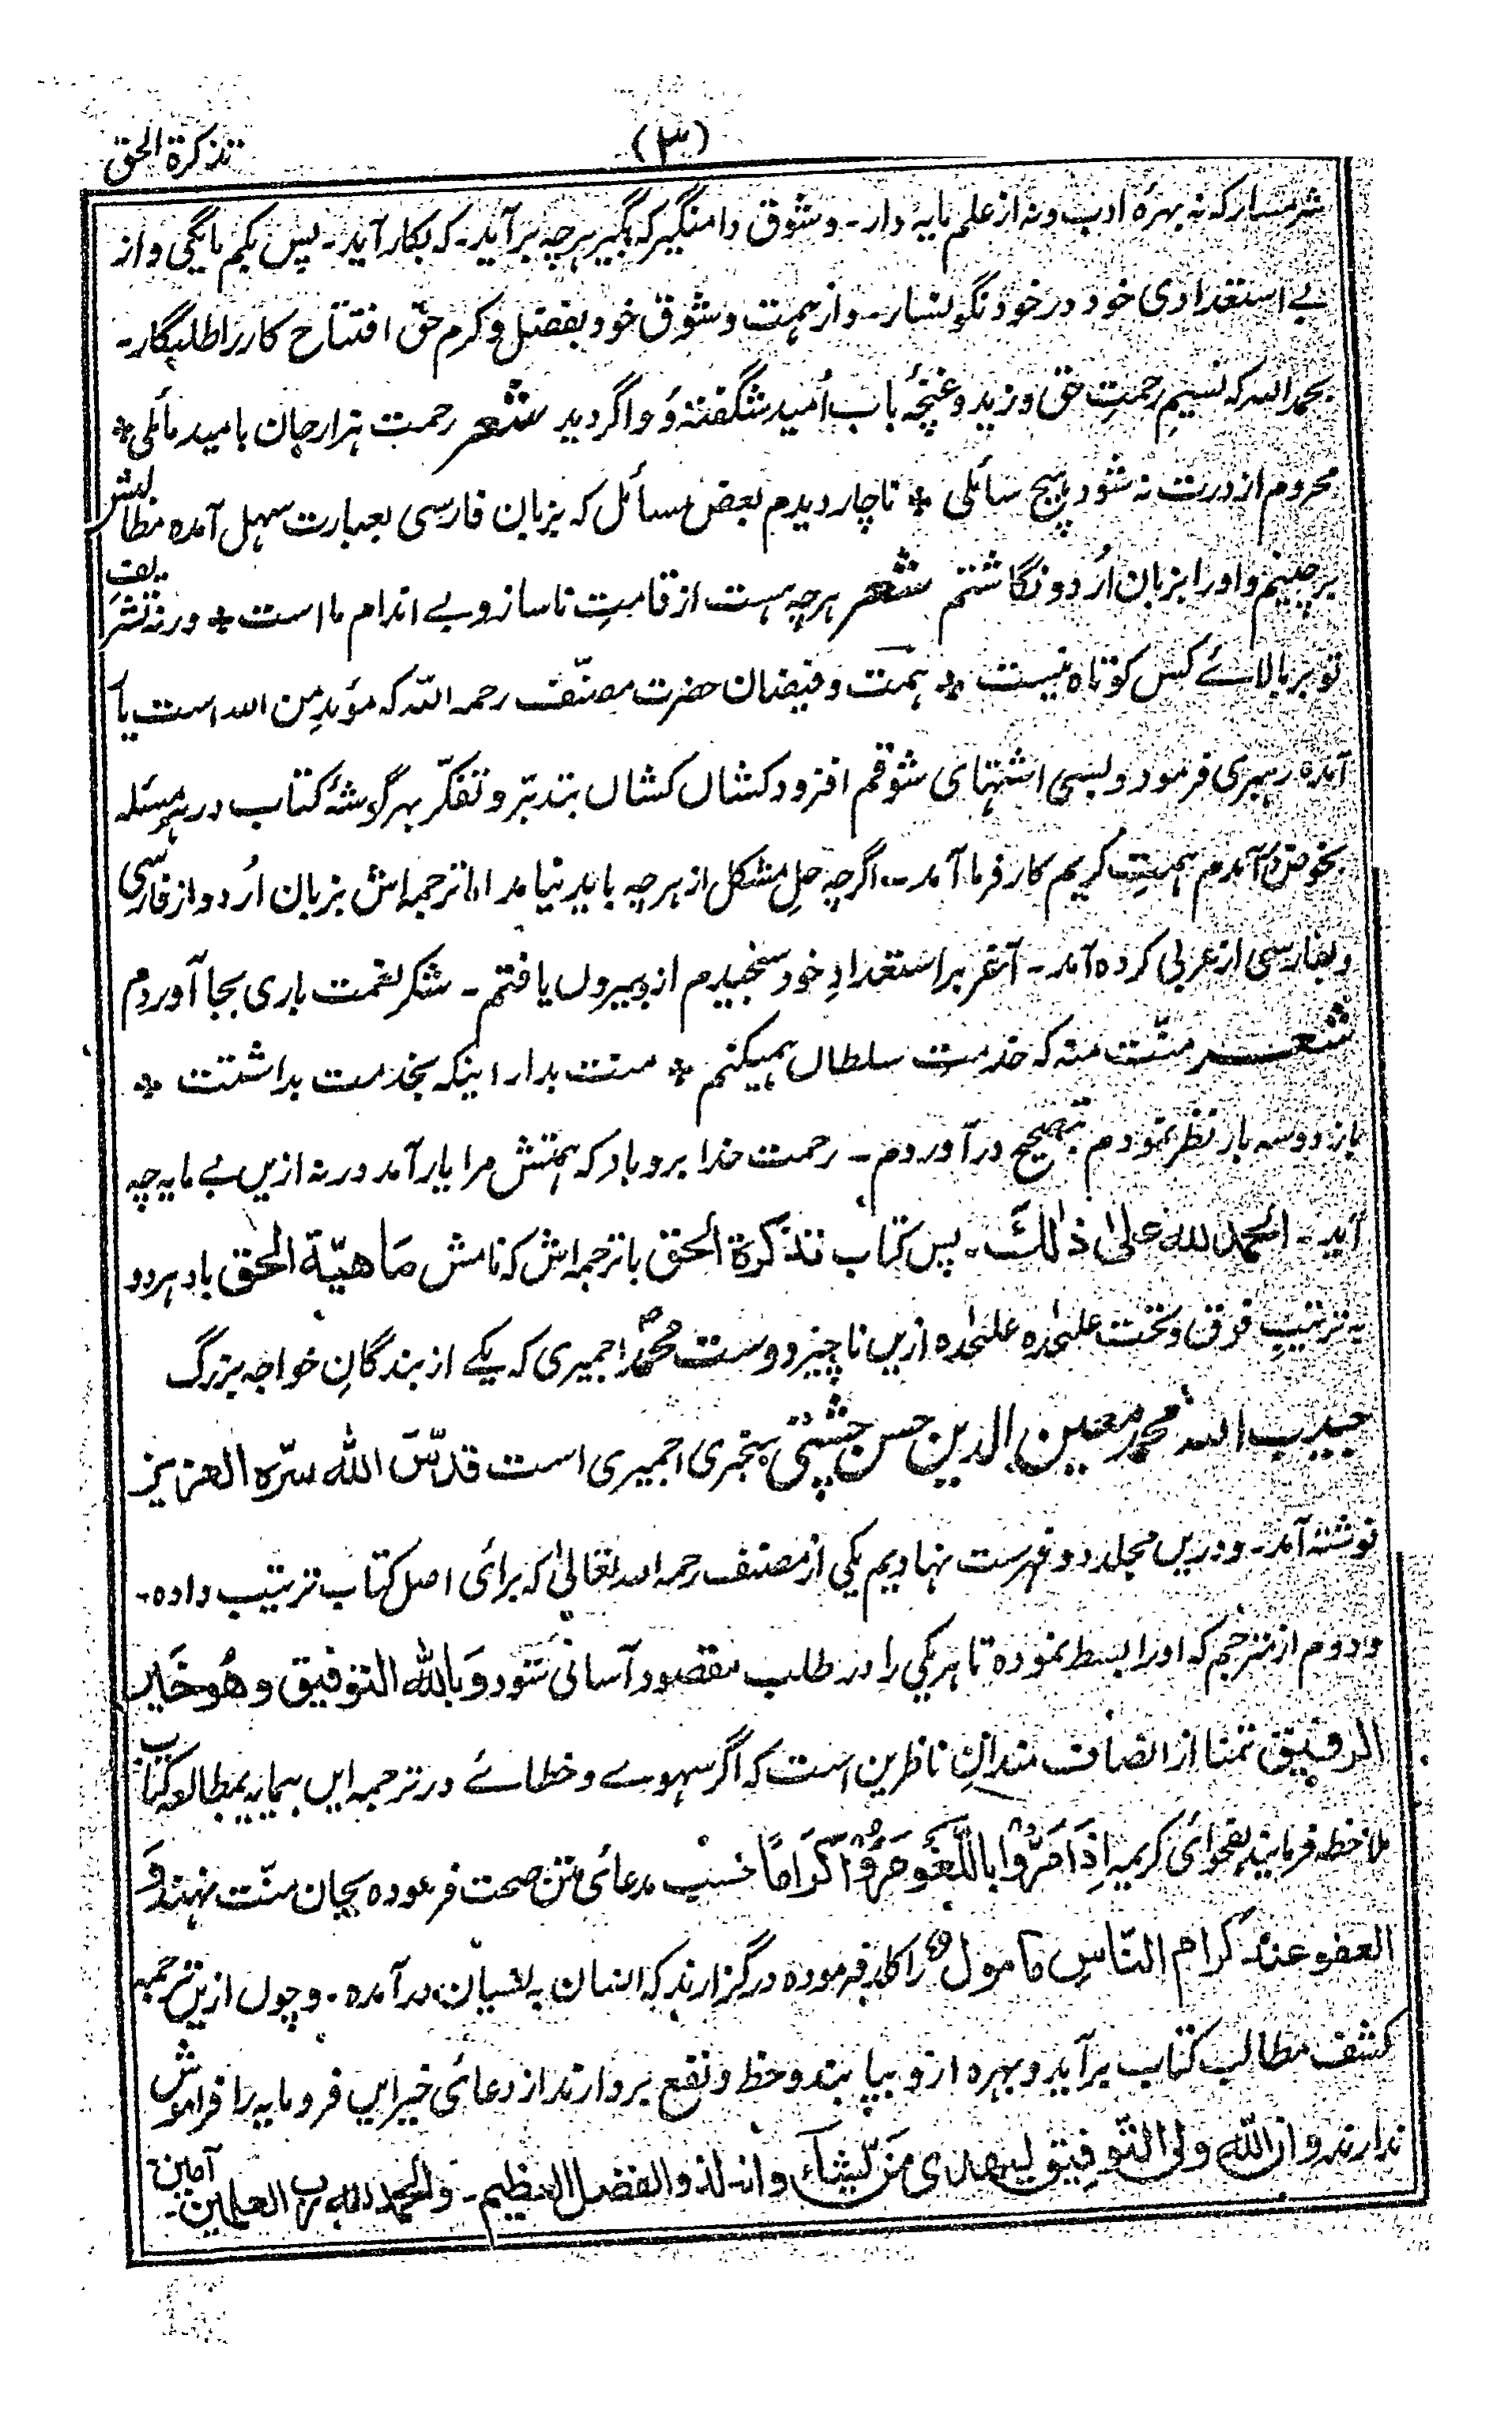 تذکرة الحق
(۳)
شرمسار که نه بهرۂ ادب و نه از علم مایه دار۔ و شوق دامنگیر که بگیر هرچه برآید۔ که بکار آید۔ پس بکم مایگی و از
بے استعدادی خود در خود نگونسار۔ و از همت و شوق خود بفضل و کرم حق افتتاح کار را طلبگار۔
بحمد الله که نسیم رحمتِ حق وزید و غنچۂ باب اُمید شگفته وُ واگردید شعر رحمت هزار جان بامید مائلی *
محروم از درت نه شود هیچ سائلی * ناچار دیدم بعض مسائل که بزبان فارسی بعبارت سهل آمده مطالبش
برچینم و او را بزبان اُردو نگاشتم شعر هرچه هست از قامتِ ناساز و بے اندام ما است * ورنه تشریفِ
تو بر بالائے کس کوتاه نیست * همت و فیضان حضرت مصنّف رحمه الله که مؤیدِ من الله است یا
آمده رهبری فرمود و بسی اشتهای شوقم افزود کشاں کشاں بتدبّر و تفکّر بهر گوشۂ کتاب در هر مسئله
بخوض درآمدم همتِ کریم کارفرما آمد۔ اگرچه حلِ مشکل از هرچه باید نیامد اما ترجمه اش بزبان اُردو از فارسی
و بفارسی از عربی کرده آمد۔ آخر بر استعدادِ خود سنجیدم از و بیروں یافتم۔ شکر نعمت باری بجا آوردم
شعر منّت منه که خدمت سلطاں همیکنم * منت بدار اینکه بخدمت بداشتت *
باز دو سه بار نظر نمودم بتصحیح درآوردم۔ رحمت خدا برو باد که همتش مرا یار آمد ورنه ازیں بے مایه چه
آید۔ الحمد لله علیٰ ذٰلکَ۔ پس کتاب تذکرة الحق با ترجمه اش که نامش مَاهیّة الحق باد هر دو
به ترتیبِ فوق و تحت علیٰحده علیٰحده ازیں ناچیز دوست محمدؐ اجمیری که یکے از بندگانِ خواجه بزرگ
حبیب الله محمد معین الدین حسن چشتی سنجری اجمیری است قدّسَ الله سرّه العزیز
نوشته آمد۔ و دریں مجلد دو فهرست نهادیم یکی از مصنف رحمه الله تعالیٰ که برای اصل کتاب ترتیب داده۔
و دوم از مترجم که او را بسط نموده تا هر یکی را در طلب مقصود آسانی شود وَ بالله التوفیق و هُو خَیر
الرفیق تمنا از انصاف مندانِ ناظرین است که اگر سهوے و خطائے در ترجمه ایں بیمایه بمطالعه کتاب
ملاحظه فرمایند بفحوای کریمه اِذَا مَرُّوا باللَّغوِ مَرُّوا کرَامًا حسب مدعای متن صحت فرموده بجان منّت نهند وَ
العفو عندَ کرام النّاسِ مامول را کار فرموده درگزارند که انسان به نسیان درآمده۔ و چوں ازیں ترجمه
کشف مطالب کتاب برآید و بهره ازو بیابند و حظ و نفع بردارند از دعای خیر ایں فرومایه را فراموش
ندارند و ان الله ولی التّوفیق لیهدی مَن یّشاء و انه لذو الفضل العظیم۔ والحمد لله رب العلمین۔ آمین۔